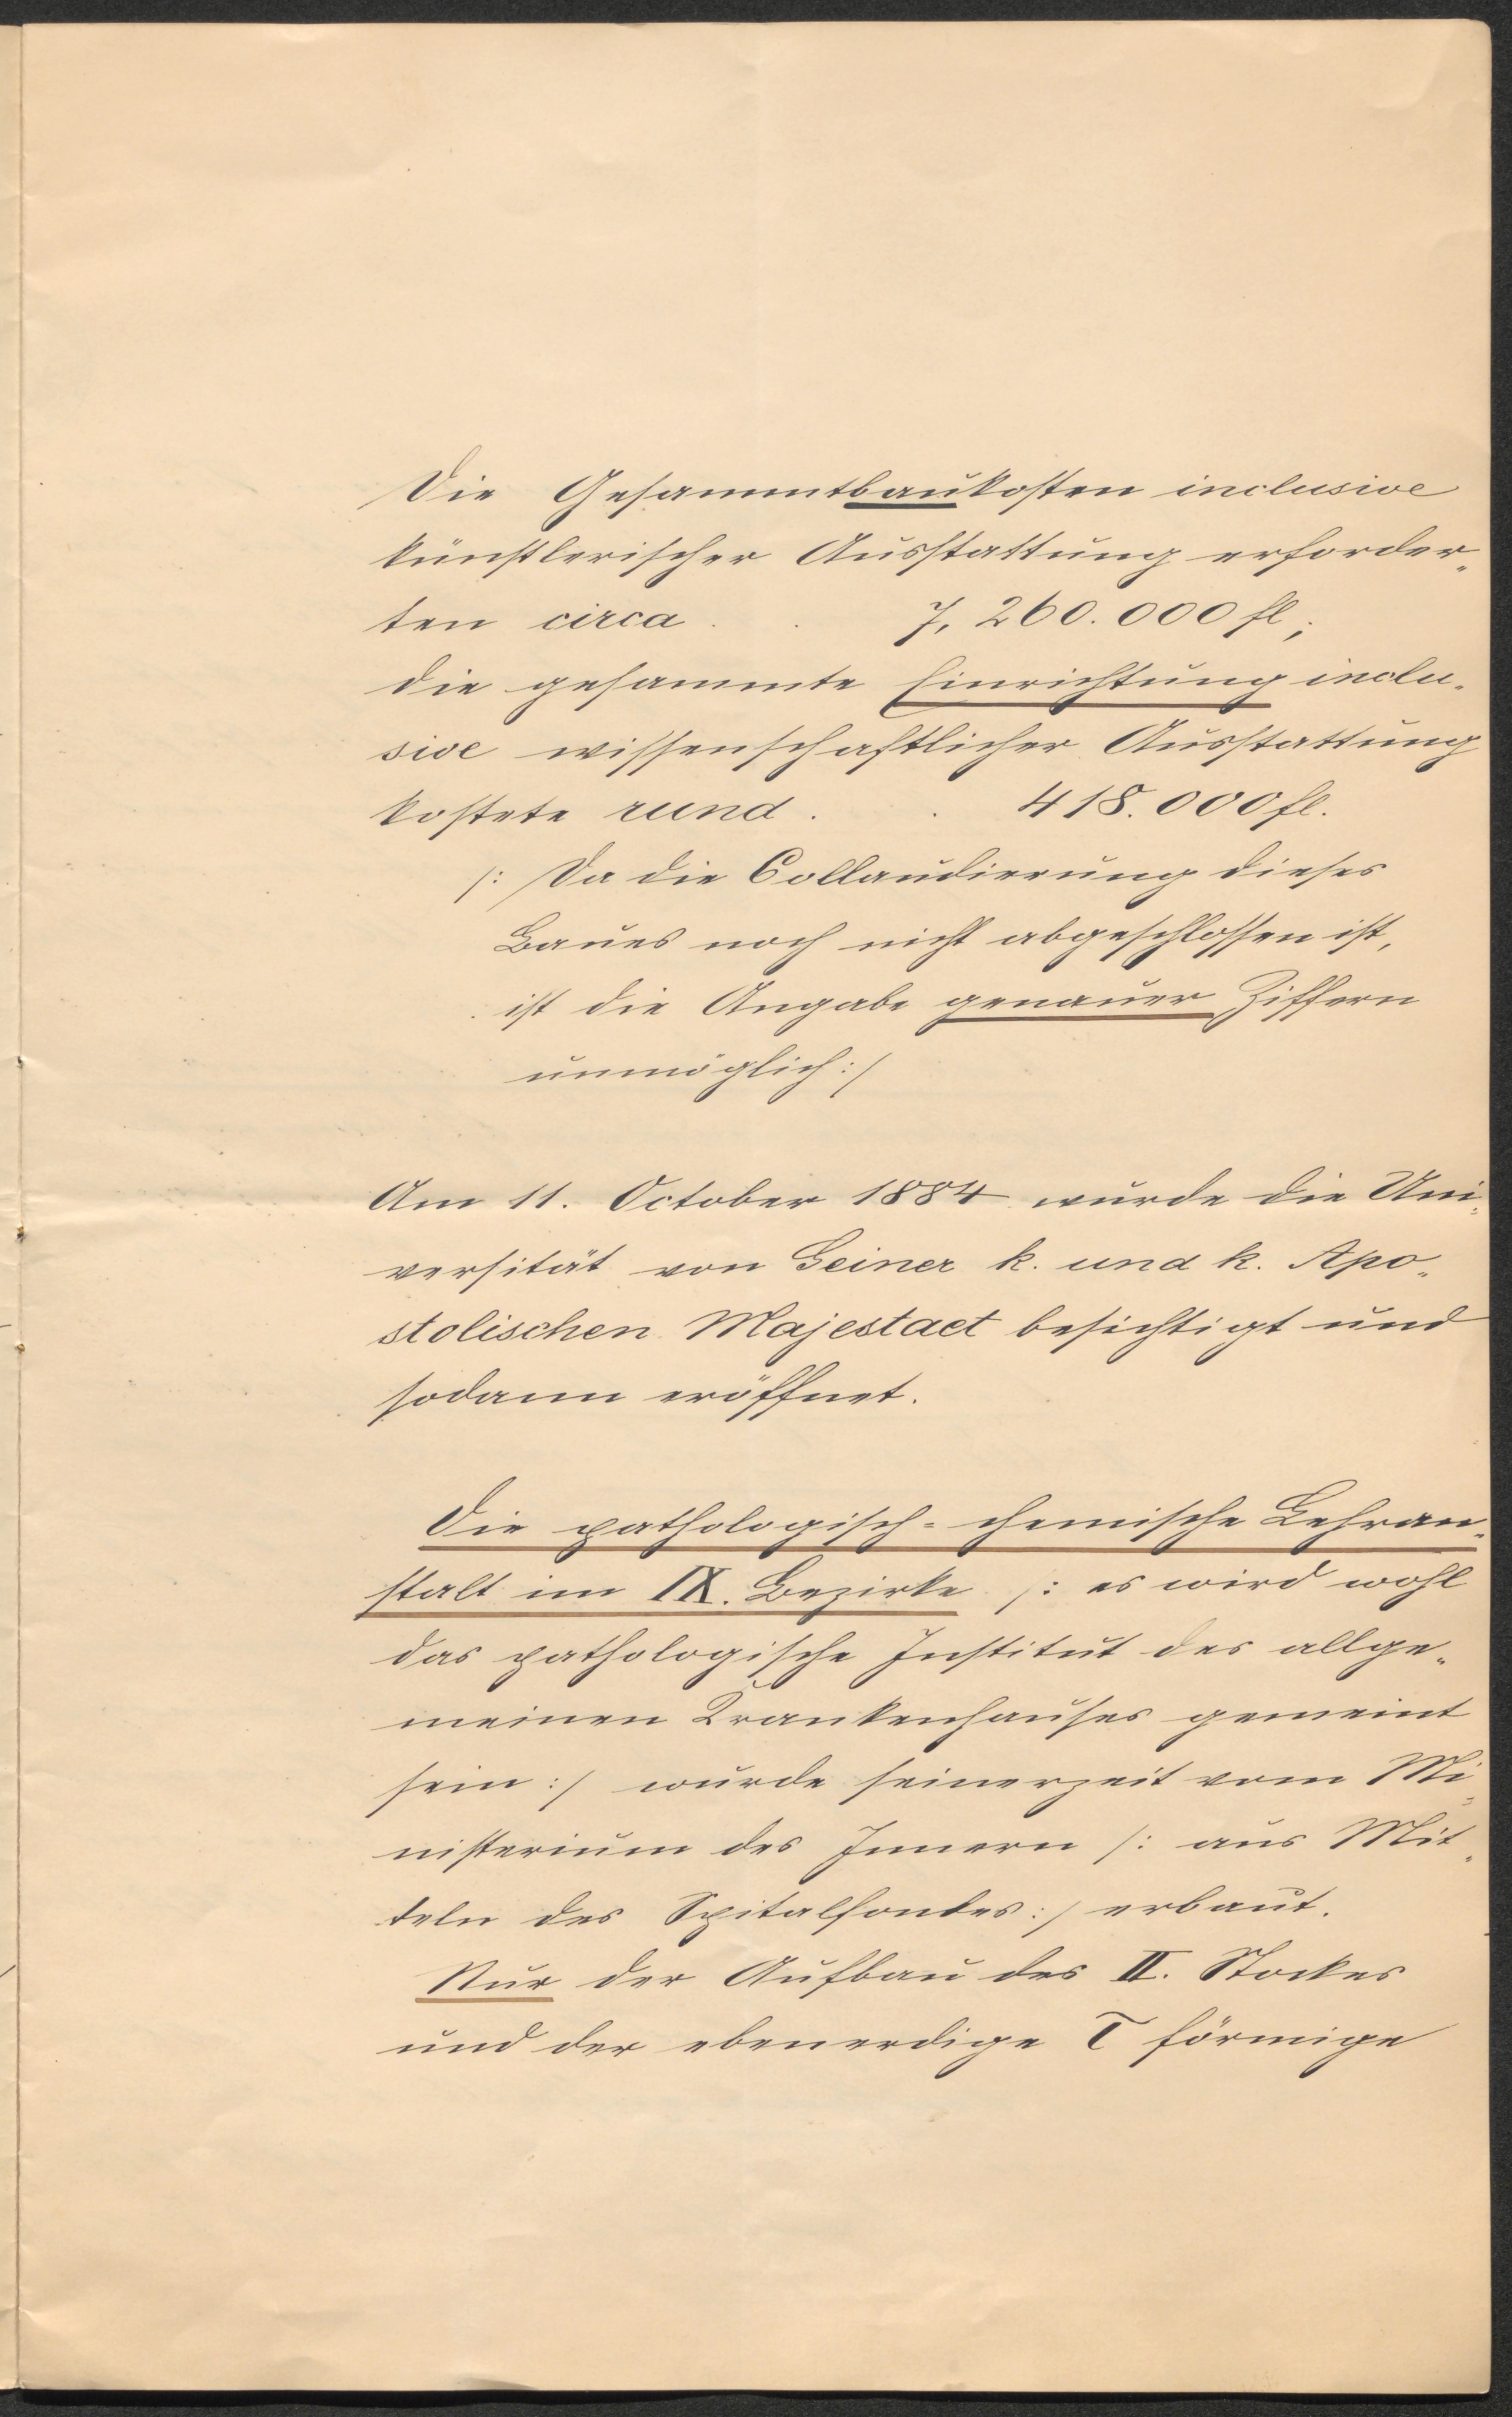 Die Gesammtbaukosten inclusive
künstlerischer Ausstattung erforder„
ten circa . . 7,260.000 fl;
die gesammte Einrichtung inclu„
sive wissenschaftlicher Ausstattung
kostete rund . . 418.000 fl.
/: Da die Collaudierung dieses
Baues noch nicht abgeschlossen ist,
ist die Angabe genauer Ziffern
unmöglich :/
Am 11. October 1884 wurde die Uni„
versität von Seiner k. und k. Apo„
stolischen Majestaet besichtigt und
sodann eröffnet.
Die pathologisch-chemische Lehran„
stalt im IX. Bezirke /: es wird wohl
das pathologische Institut des allge„
meinen Krankenhauses gemeint
sein :/ wurde seinerzeit vom Mi„
nisterium des Innern /: aus Mit„
teln des Spitalfondes :/ erbaut.
Nur der Aufbau des II. Stockes
und der ebenerdige T förmige